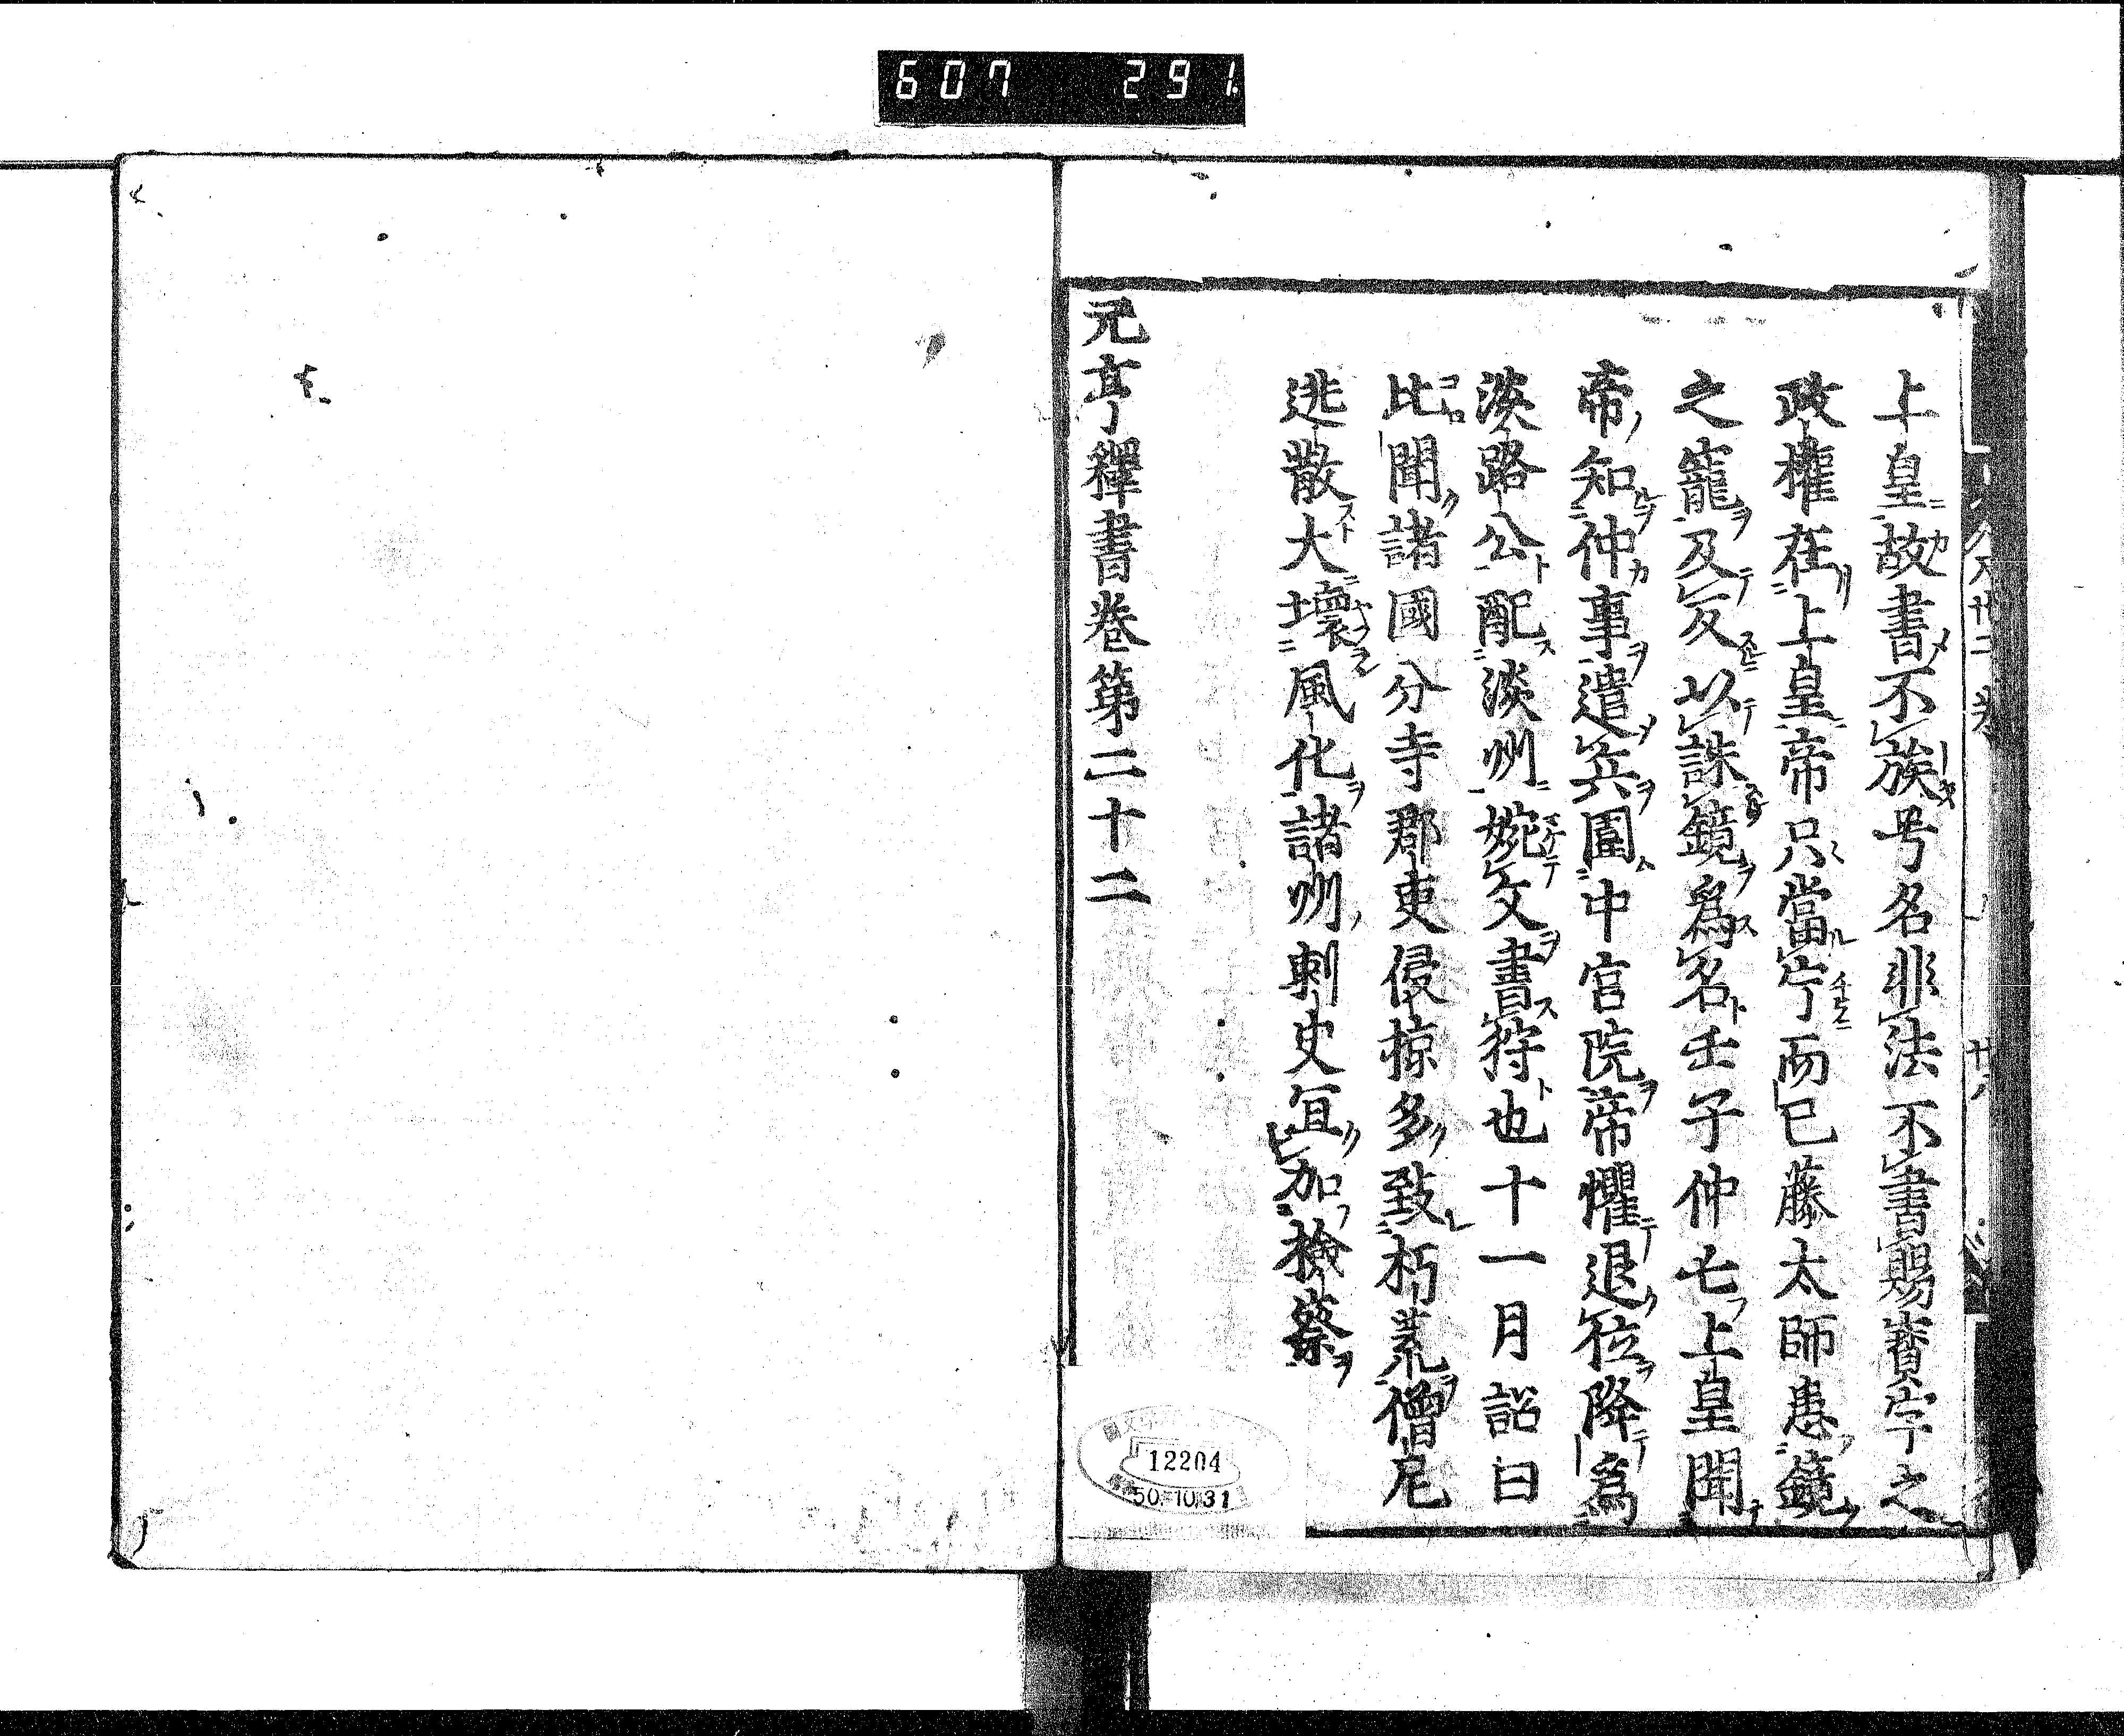 607 291
上皇故書不族号名非法不書賜賚宁之
政權在上皇帝只當宁而已藤太師恚鏡
之寵及反以誅鏡為名壬子仲亡上皇聞
帝知仲事遣兵圍中宮院帝懼退位降為
淡路公配淡州婉文書狩也十一月詔曰
比聞諸國分寺郡吏侵掠多致朽荒僧尼
逃散大壞風化諸州刺史宜加檢察
元亨釋書巻第二十二
12204
50.10.31